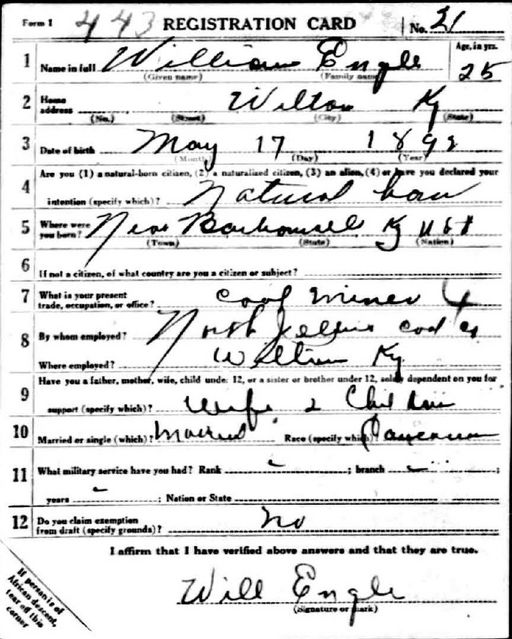 Form 1 443 REGISTRATION CARD No. 21
1 Name in full William Engle Age, in yrs. 25
(Given name) (Family name)
2 Home address Wilton Ky
(No.) (Street) (City) (State)
3 Date of birth May 17 1892
(Month) (Day) (Year)
4 Are you (1) a natural-born citizen, (2) a naturalized citizen, (3) an alien, (4) or have you declared your
intention (specify which)? Natural born
5 Where were you born? Near Barbourville Ky USA
(Town) (State) (Nation)
6 If not a citizen, of what country are you a citizen or subject?
7 What is your present trade, occupation, or office? Coal Miner 4
8 By whom employed? North Jellico Coal Co
Where employed? Wilton Ky
9 Have you a father, mother, wife, child under 12, or a sister or brother under 12, solely dependent on you for
support (specify which)? Wife 2 Children
10 Married or single (which)? Married Race (specify which)? Caucasian
11 What military service have you had? Rank - ; branch - ;
years - ; Nation or State
12 Do you claim exemption from draft (specify grounds)? No
I affirm that I have verified above answers and that they are true.
Will Engle
(Signature or mark)
If person is of
African descent,
tear off this
corner